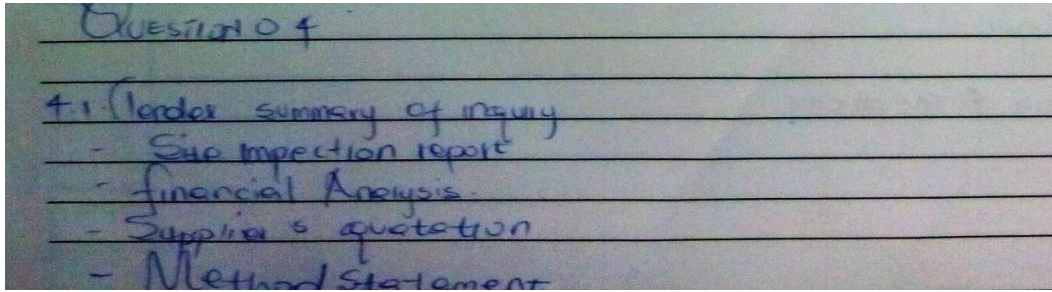 QUESTION 04
4.1. Tender summary of inquiry
- Site inspection report
- financial Analysis.
- Supplier s quotation
- Method Statement